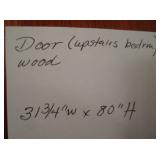 Door (upstairs bedrm)
wood
31 3/4" w x 80" H